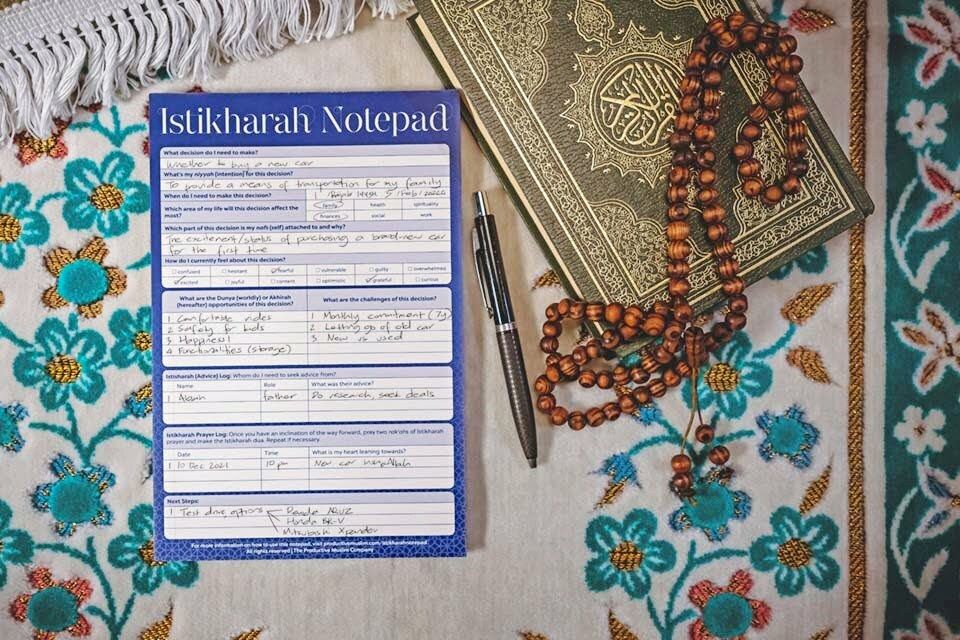 Istikharah Notepad
What decision do I need to make?
Whether to buy a new car
What's my niyyah (intention) for this decision?
To provide a means of transportation for my family
When do I need to make this decision? 1 / Rajab / Feb /
Which area of my life will this decision affect the most?
family health spirituality
finances social work
Which part of this decision is my nafs (self) attached to and why?
The excitement/status of purchasing a brand-new car
for the first time
How do I currently feel about this decision?
confused hesitant fearful vulnerable guilty overwhelmed
excited joyful content optimistic grateful curious
What are the Dunya (worldly) or Akhirah (hereafter) opportunities of this decision?
1 Comfortable rides
2 Safety for kids
3 Happiness!
4 Functionalities (storage)
What are the challenges of this decision?
1 Monthly commitment (7y)
2 Letting go of old car
3 New vs used
Istisharah (Advice) Log: Whom do I need to seek advice from?
Name Role What was their advice?
1 father Do research, seek deals
Istikharah Prayer Log: Once you have an inclination of the way forward, pray two rak'ahs of Istikharah
prayer and make the Istikharah dua. Repeat if necessary.
Date Time What is my heart leaning towards?
1 10 Dec 2021 10 pm New car inshaAllah
Next Steps:
1 Test drive options ARUZ
Honda BR-V
Mitsubishi Xpander
For more information on how to use this notepad, visit productivemuslim.com/istikharahnotepad
All rights reserved | The Productive Muslim Company
القرآن الكريم